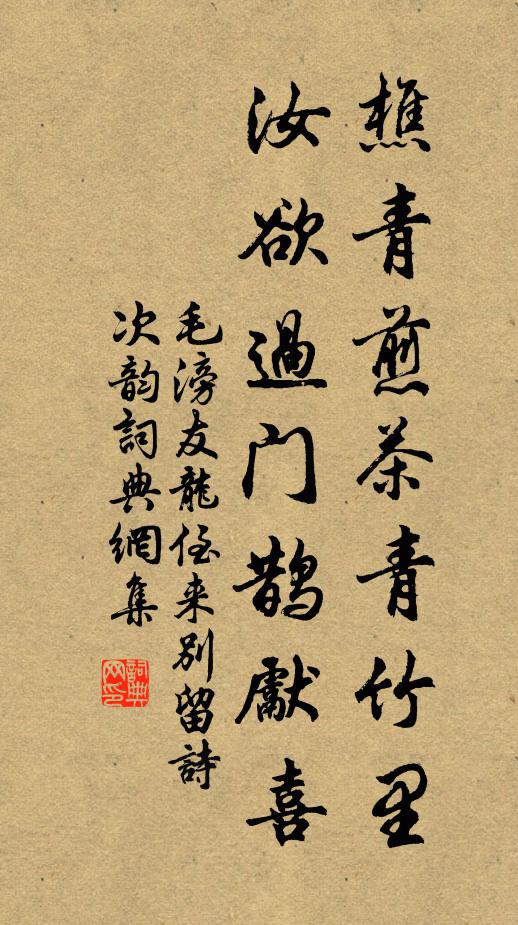 樵青煎茶青竹里
汝欲過门鵲獻喜
毛滂友龍侄来别留詩
次韵詞典網集
詞典网印